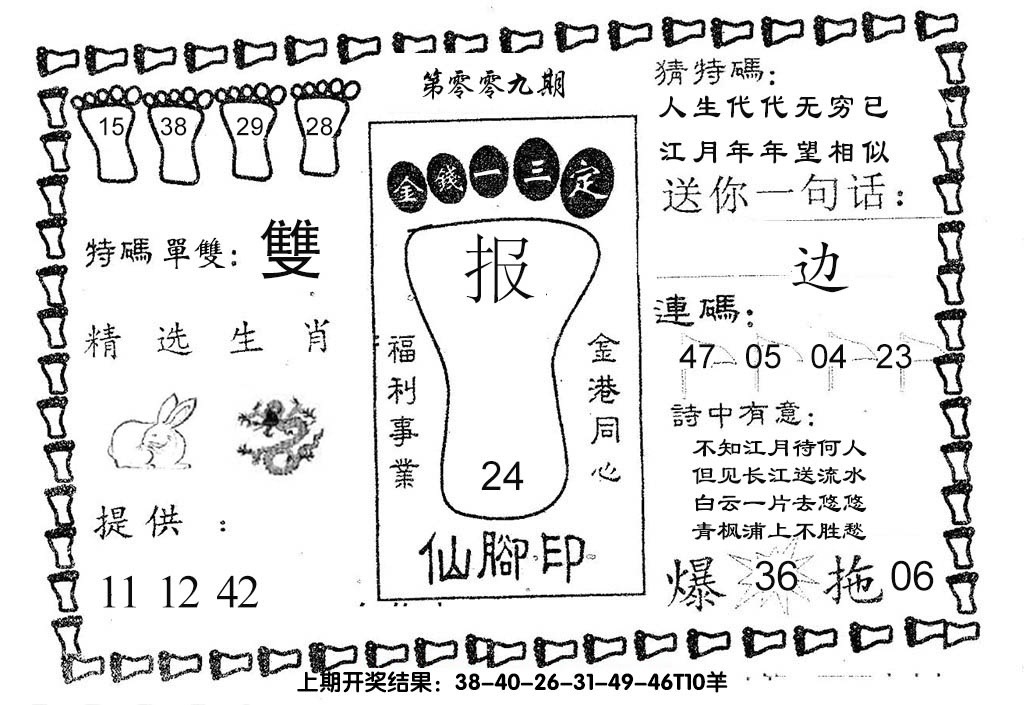 第零零九期
15 38 29 28
特碼單雙：雙
精选生肖
提供：
11 12 42
金錢一三定
报
福利事業
金港同心
24
仙腳印
猜特碼：
人生代代无穷已
江月年年望相似
送你一句话：
边
連碼：
47 05 04 23
詩中有意：
不知江月待何人
但见长江送流水
白云一片去悠悠
青枫浦上不胜愁
爆 36 拖 06
上期开奖结果：38-40-26-31-49-46T10羊